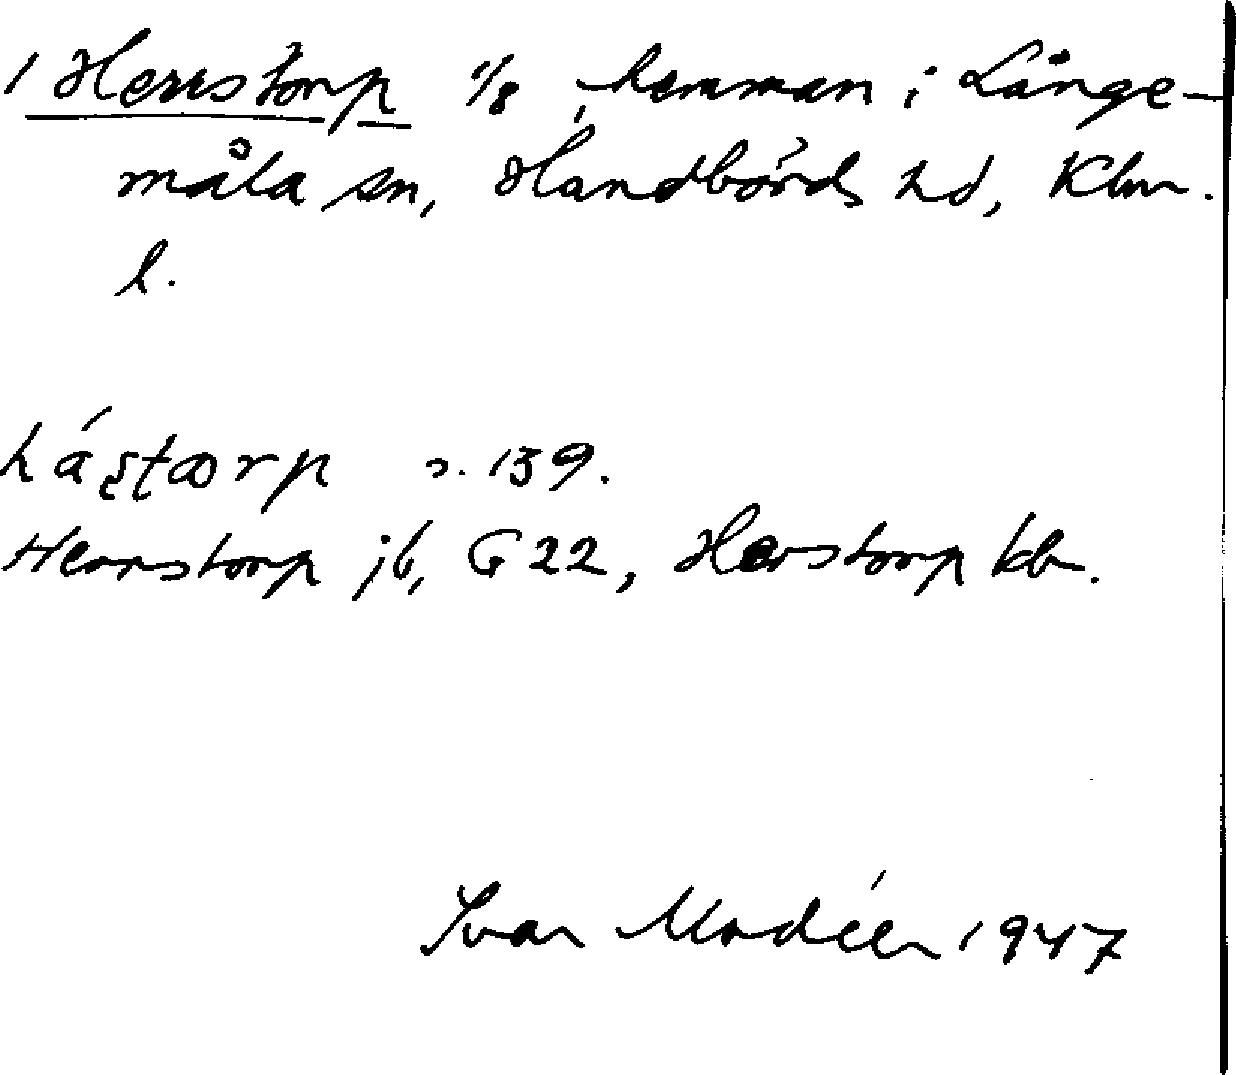 1 Herrstorp 1/8 hemman i Långe-
måla sn, Handbörds hd, Klm.
l.
s. 139.
Herrstorp jb, G 22, Herstorp kb.
Ivar Modéer 1947